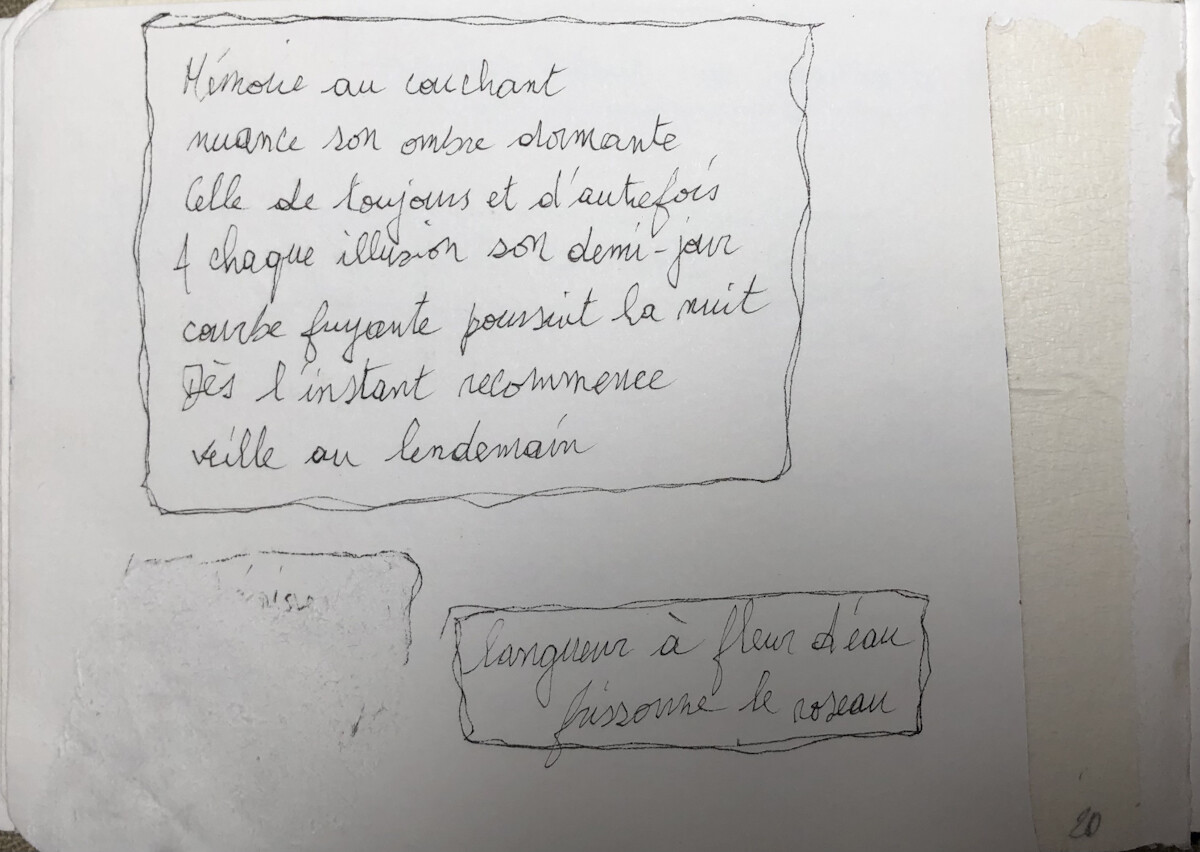 Mémoire au couchant
nuance son ombre dormante
Celle de toujours et d'autrefois
A chaque illusion son demi-jour
courbe fuyante poursuit la nuit
Dès l'instant recommence
veille au lendemain
langueur à fleur d'eau
frissonne le roseau
20